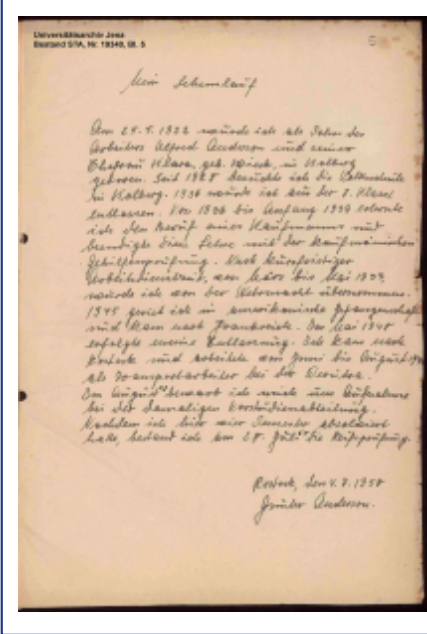 Universitätsarchiv Jena
Bestand STA, Nr. 19340, Bl. 5
5
Mein Lebenslauf
Am 29.9.1922 wurde ich als Sohn des
Arbeiters Alfred Anderson und seiner
Ehefrau Klara, geb. in Kolberg
geboren. Seit 1928 besuchte ich die Volksschule
in Kolberg. 1936 wurde ich aus der 8. Klasse
entlassen. Von 1936 bis Anfang 1939 erlernte
ich den Beruf eines Kaufmanns und
beendigte diese Lehre mit der Kaufmännischen
Gehilfenprüfung. Nach kurzfristiger
von März bis Mai 1939,
wurde ich von der Wehrmacht übernommen.
1945 geriet ich in amerikanische Gefangenschaft
und kam nach Frankreich. Im Mai 1948
erfolgte meine Entlassung. Ich kam nach
Rostock und arbeitete von Juni bis August
als Transportarbeiter bei der
Im August bewarb ich mich um Aufnahme
bei der damaligen Vorstudienabteilung.
Nachdem ich hier vier Semester absolviert
habe, bestand ich am 28. Juli die Reifeprüfung.
Rostock, den 4.8.1950
Günter Anderson.